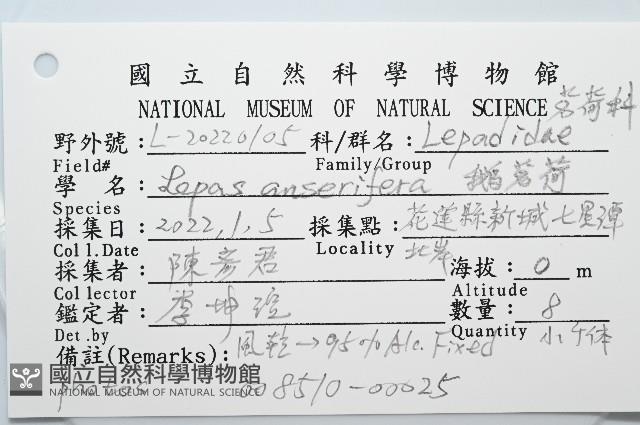 國立自然科學博物館
NATIONAL MUSEUM OF NATURAL SCIENCE 茗荷科
野外號：L-20220105 科/群名：Lepadidae
Field# Family/Group
學 名：Lepas anserifera 鵝茗荷
Species
採集日：2022,1,5 採集點：花蓮縣新城七星潭
Coll.Date Locality 北岸
採集者：陳彥君 海拔：0 m
Collector Altitude
鑑定者：李坤瑄 數量：8
Det.by Quantity 小个体
備註(Remarks)：風乾→95% Alc. Fixed
國立自然科學博物館
NATIONAL MUSEUM OF NATURAL SCIENCE
008510-00025